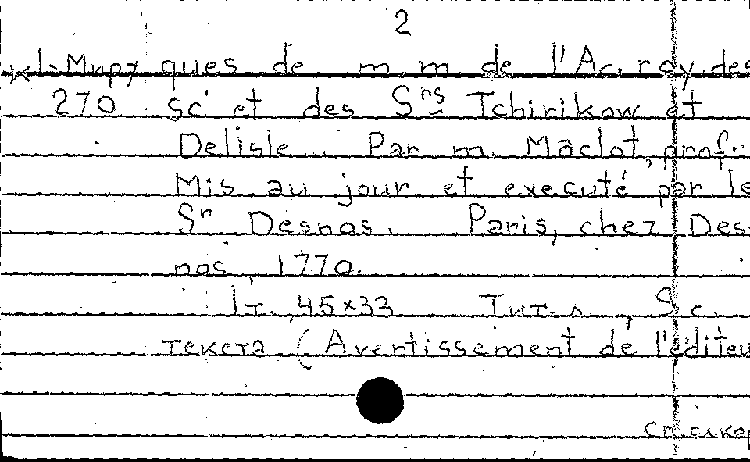 2
ques de m m de l'Ac. roy. des
270 sc. et des Srs Tchirikow et
Delisle. Par m. Maclot, prof.
Mis au jour et executé par le
Sr Desnos. Paris, chez Des-
nos, 1770.
1т. 45×33 Тит. л., 8 с.
текста (Avertissement de l'éditeu